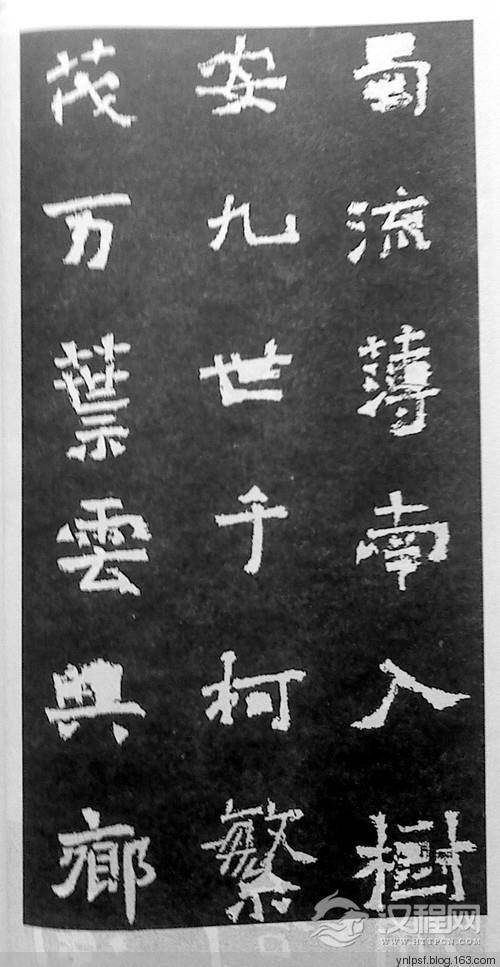 蜀流薄南入樹
安九世千柯繁
茂万葉雲興鄉
汉程网
WWW.HTTPCN.COM
ynlpsf.blog.163.com